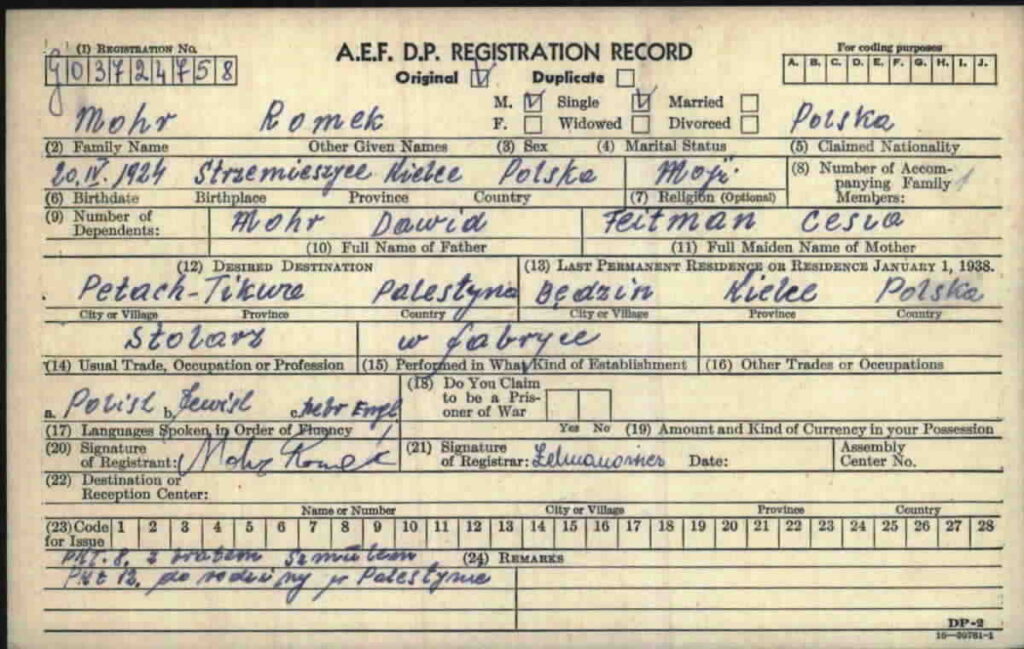 (1) Registration No.
A.E.F. D.P. REGISTRATION RECORD
For coding purposes
G03724758
Original ☑ Duplicate ☐
A. B. C. D. E. F. G. H. I. J.
M. ☑ Single ☑ Married ☐
Mohr Romek F. ☐ Widowed ☐ Divorced ☐ Polska
(2) Family Name Other Given Names (3) Sex (4) Marital Status (5) Claimed Nationality
20.IV.1924 Strzemieszyce Kielce Polska Mojż. (8) Number of Accompanying Family Members: 1
(6) Birthdate Birthplace Province Country (7) Religion (Optional)
(9) Number of Dependents: Mohr Dawid Feitman Cesia
(10) Full Name of Father (11) Full Maiden Name of Mother
(12) Desired Destination (13) Last Permanent Residence or Residence January 1, 1938.
Petach-Tikwa Palestyna Będzin Kielce Polska
City or Village Province Country City or Village Province Country
Stolarz w fabryce
(14) Usual Trade, Occupation or Profession (15) Performed in What Kind of Establishment (16) Other Trades or Occupations
a. Polish b. Jewish c. Hebr Engl (18) Do You Claim to be a Prisoner of War
(17) Languages Spoken in Order of Fluency Yes No (19) Amount and Kind of Currency in your Possession
(20) Signature of Registrant: Mohr Romek (21) Signature of Registrar: Date: Assembly Center No.
(22) Destination or Reception Center:
Name or Number City or Village Province Country
(23) Code for Issue 1 2 3 4 5 6 7 8 9 10 11 12 13 14 15 16 17 18 19 20 21 22 23 24 25 26 27 28
(24) Remarks
PKT. 8. z bratem Szmulem
PKT 12. do rodziny w Palestynie
DP-2